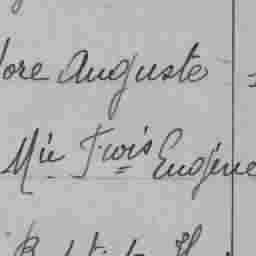 dore Auguste
Mie Frois Eugène